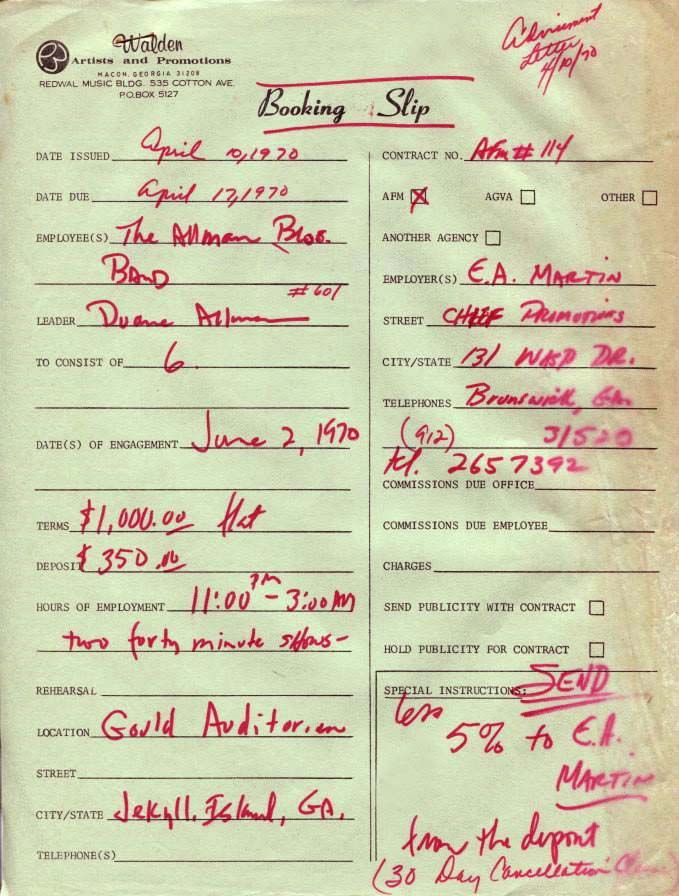 Walden
Artists and Promotions
MACON, GEORGIA 31208
REDWAL MUSIC BLDG. 535 COTTON AVE.
P.O.BOX 5127
Advisement
Letter
4/10/70
Booking Slip
DATE ISSUED April 10, 1970
DATE DUE April 17, 1970
EMPLOYEE(S) The Allman Bros.
BAND
#601
LEADER Duane Allman
TO CONSIST OF 6.
DATE(S) OF ENGAGEMENT June 2, 1970
TERMS $1,000.00 flat
DEPOSIT $350.00
HOURS OF EMPLOYMENT 11:00 PM - 3:00 AM
two forty minute shows-
REHEARSAL
LOCATION Gould Auditorium
STREET
CITY/STATE Jekyll Island, GA.
TELEPHONE(S)
CONTRACT NO. Afm # 114
AFM X AGVA OTHER
ANOTHER AGENCY
EMPLOYER(S) E.A. MARTIN
STREET CHIEF PROMOTIONS
CITY/STATE 131 WASP DR.
TELEPHONES Brunswick, Ga.
(912) 31520
tel. 2657392
COMMISSIONS DUE OFFICE
COMMISSIONS DUE EMPLOYEE
CHARGES
SEND PUBLICITY WITH CONTRACT
HOLD PUBLICITY FOR CONTRACT
SPECIAL INSTRUCTIONS: SEND
less
5% to E.A.
MARTIN
from the deposit
(30 Day Cancellation Clause)